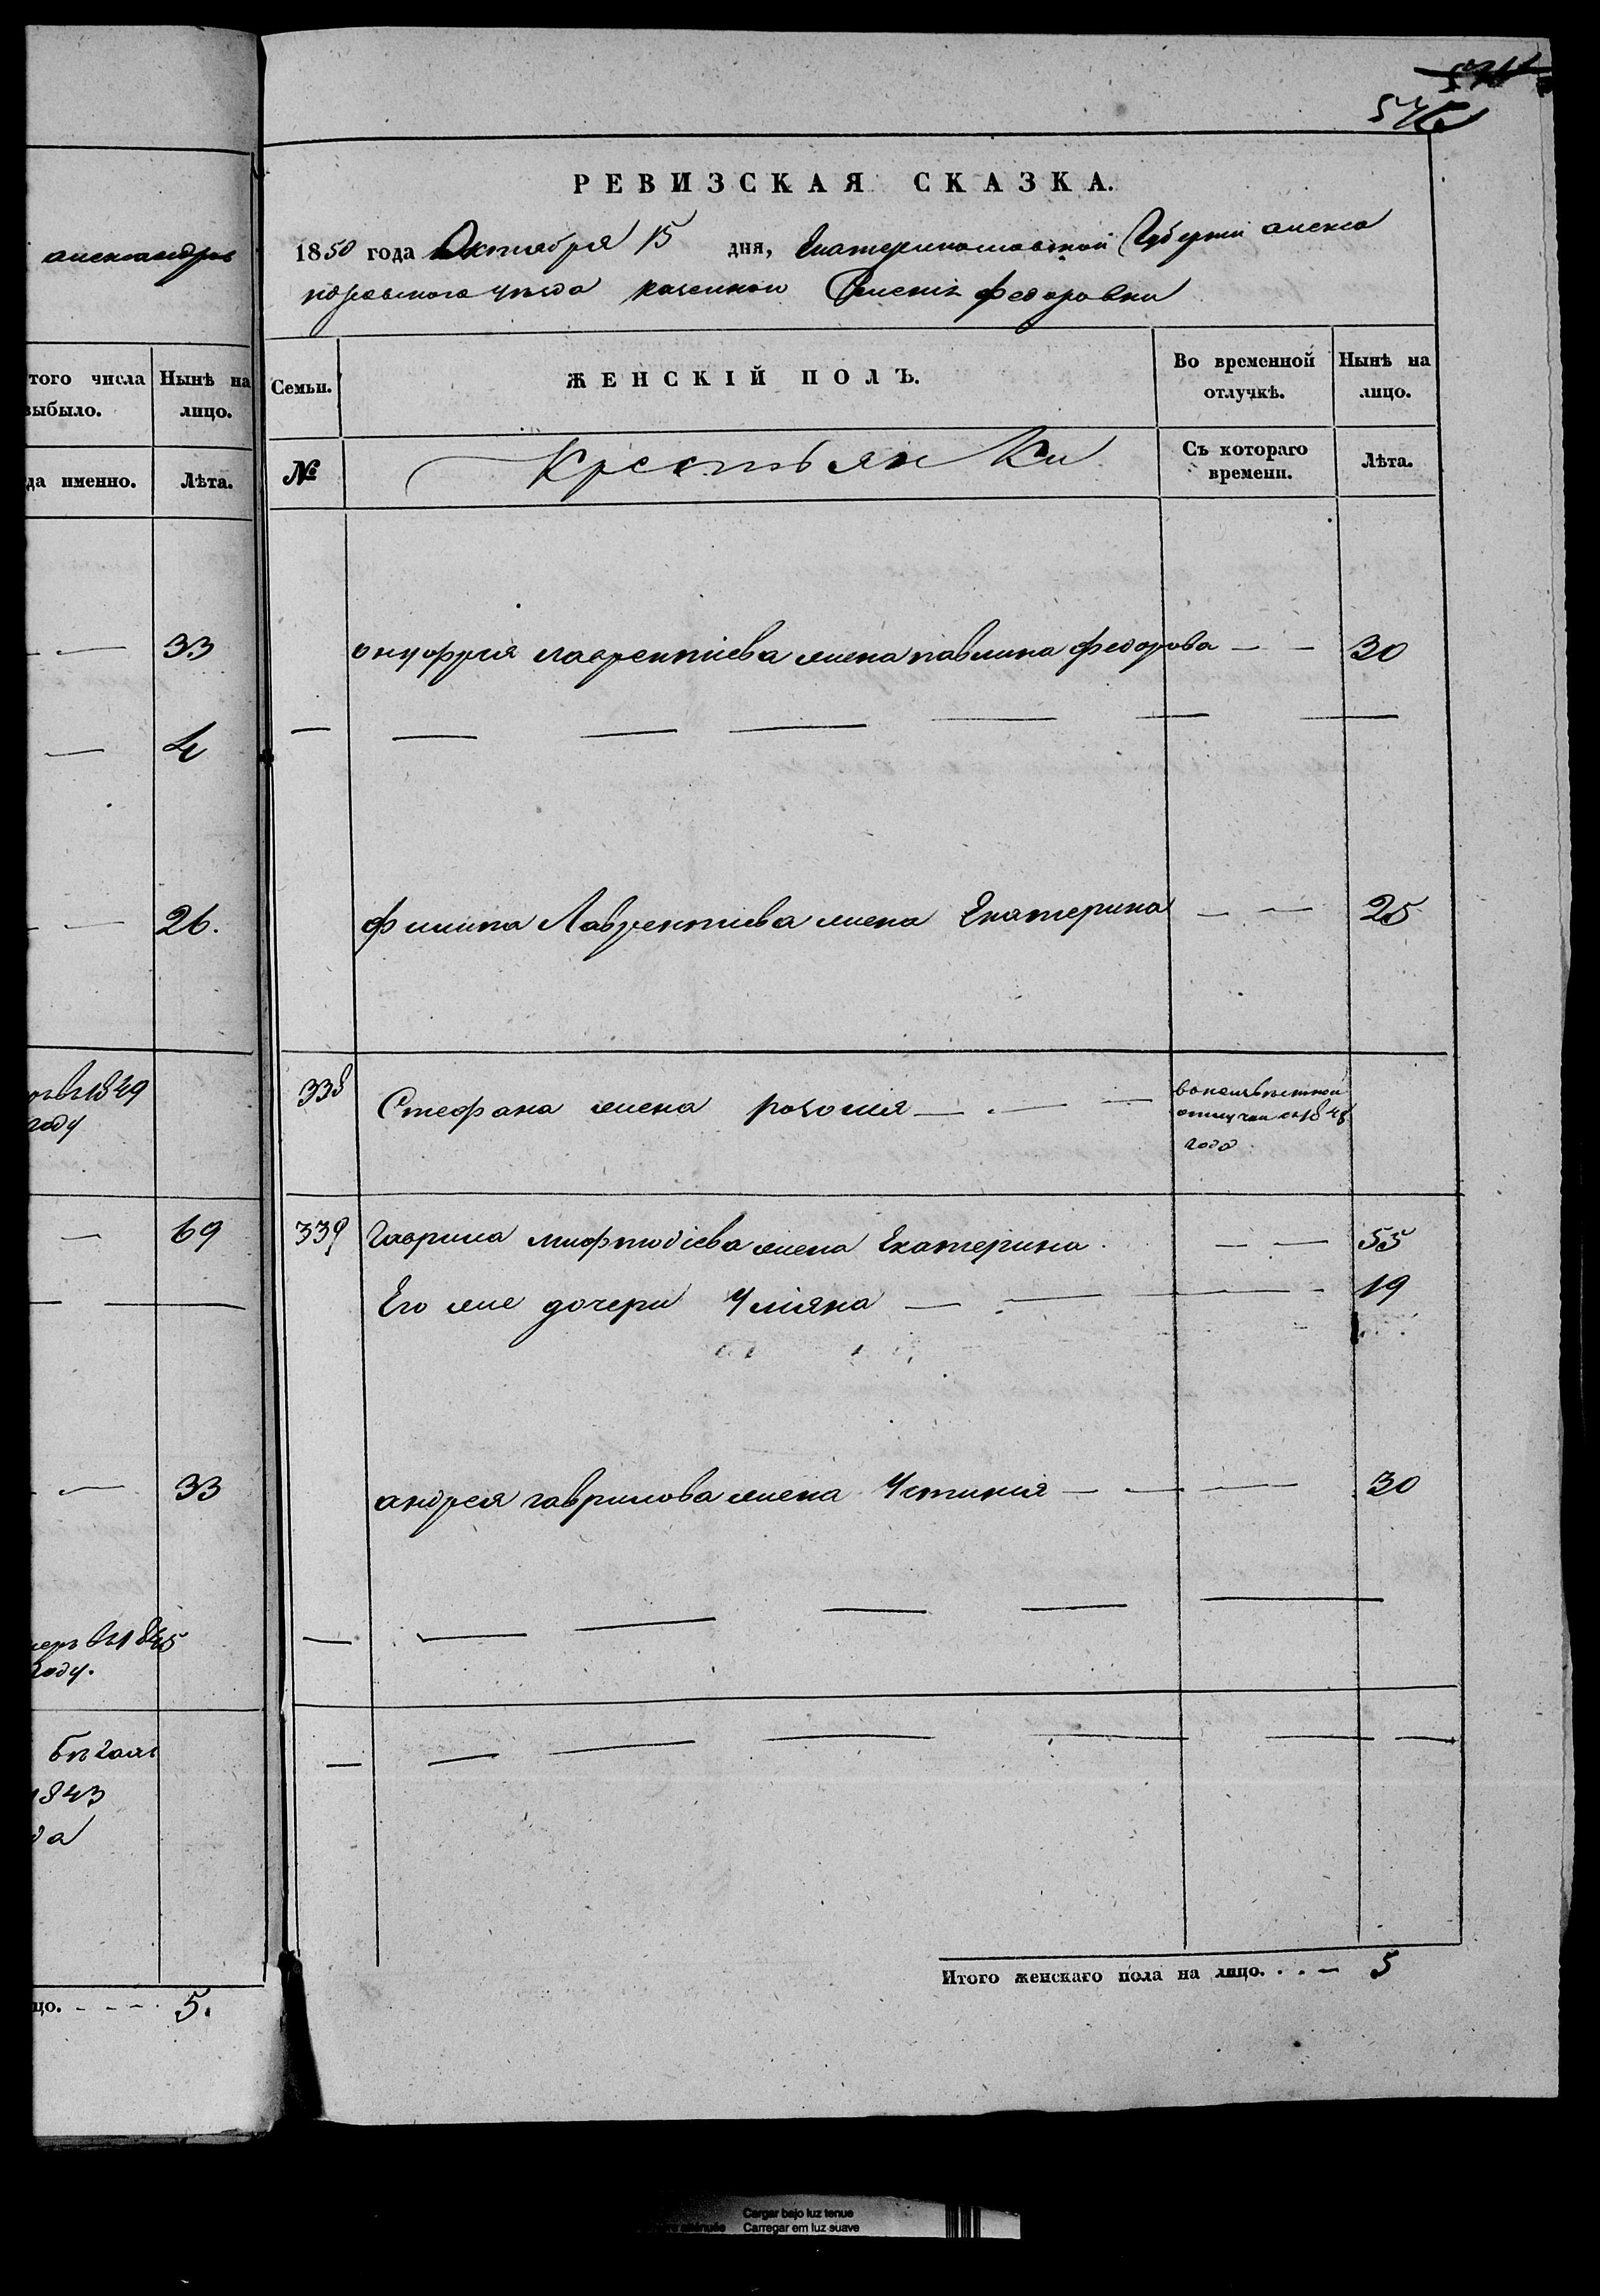 александро
того числа
Нынѣ на
выбыло.
лицо.
да именно.
Лѣта.
33
4
26.
1849
году
69
33
1845
году.
1843
да
цо. - - - - 5.
545
РЕВИЗСКАЯ СКАЗКА.
1850 года Октября 15 дня, Екатеринославской Губерніи алекса
ндровскаго уѣзда казенной Селенія федоровки
Семьи.
ЖЕНСКІЙ ПОЛЪ.
Во временной отлучкѣ.
Нынѣ на лицо.
№
Крестьянки
Съ котораго времени.
Лѣта.
онуфрія лаврентіева жена павлина федорова — — 30
филипа Лаврентиева жена Екатерина — — 25
338 Стефана жена — . — —
отлучки съ 1848
года
339 Гаврила мифтодіева жена Екатерина — — 55
Его же дочери Уліяна — . — — — 19
андрея гаврилова жена Устинія — — — 30
Итого женскаго пола на лицо. . . — 5
Cargar bajo luz tenue
Carregar em luz suave